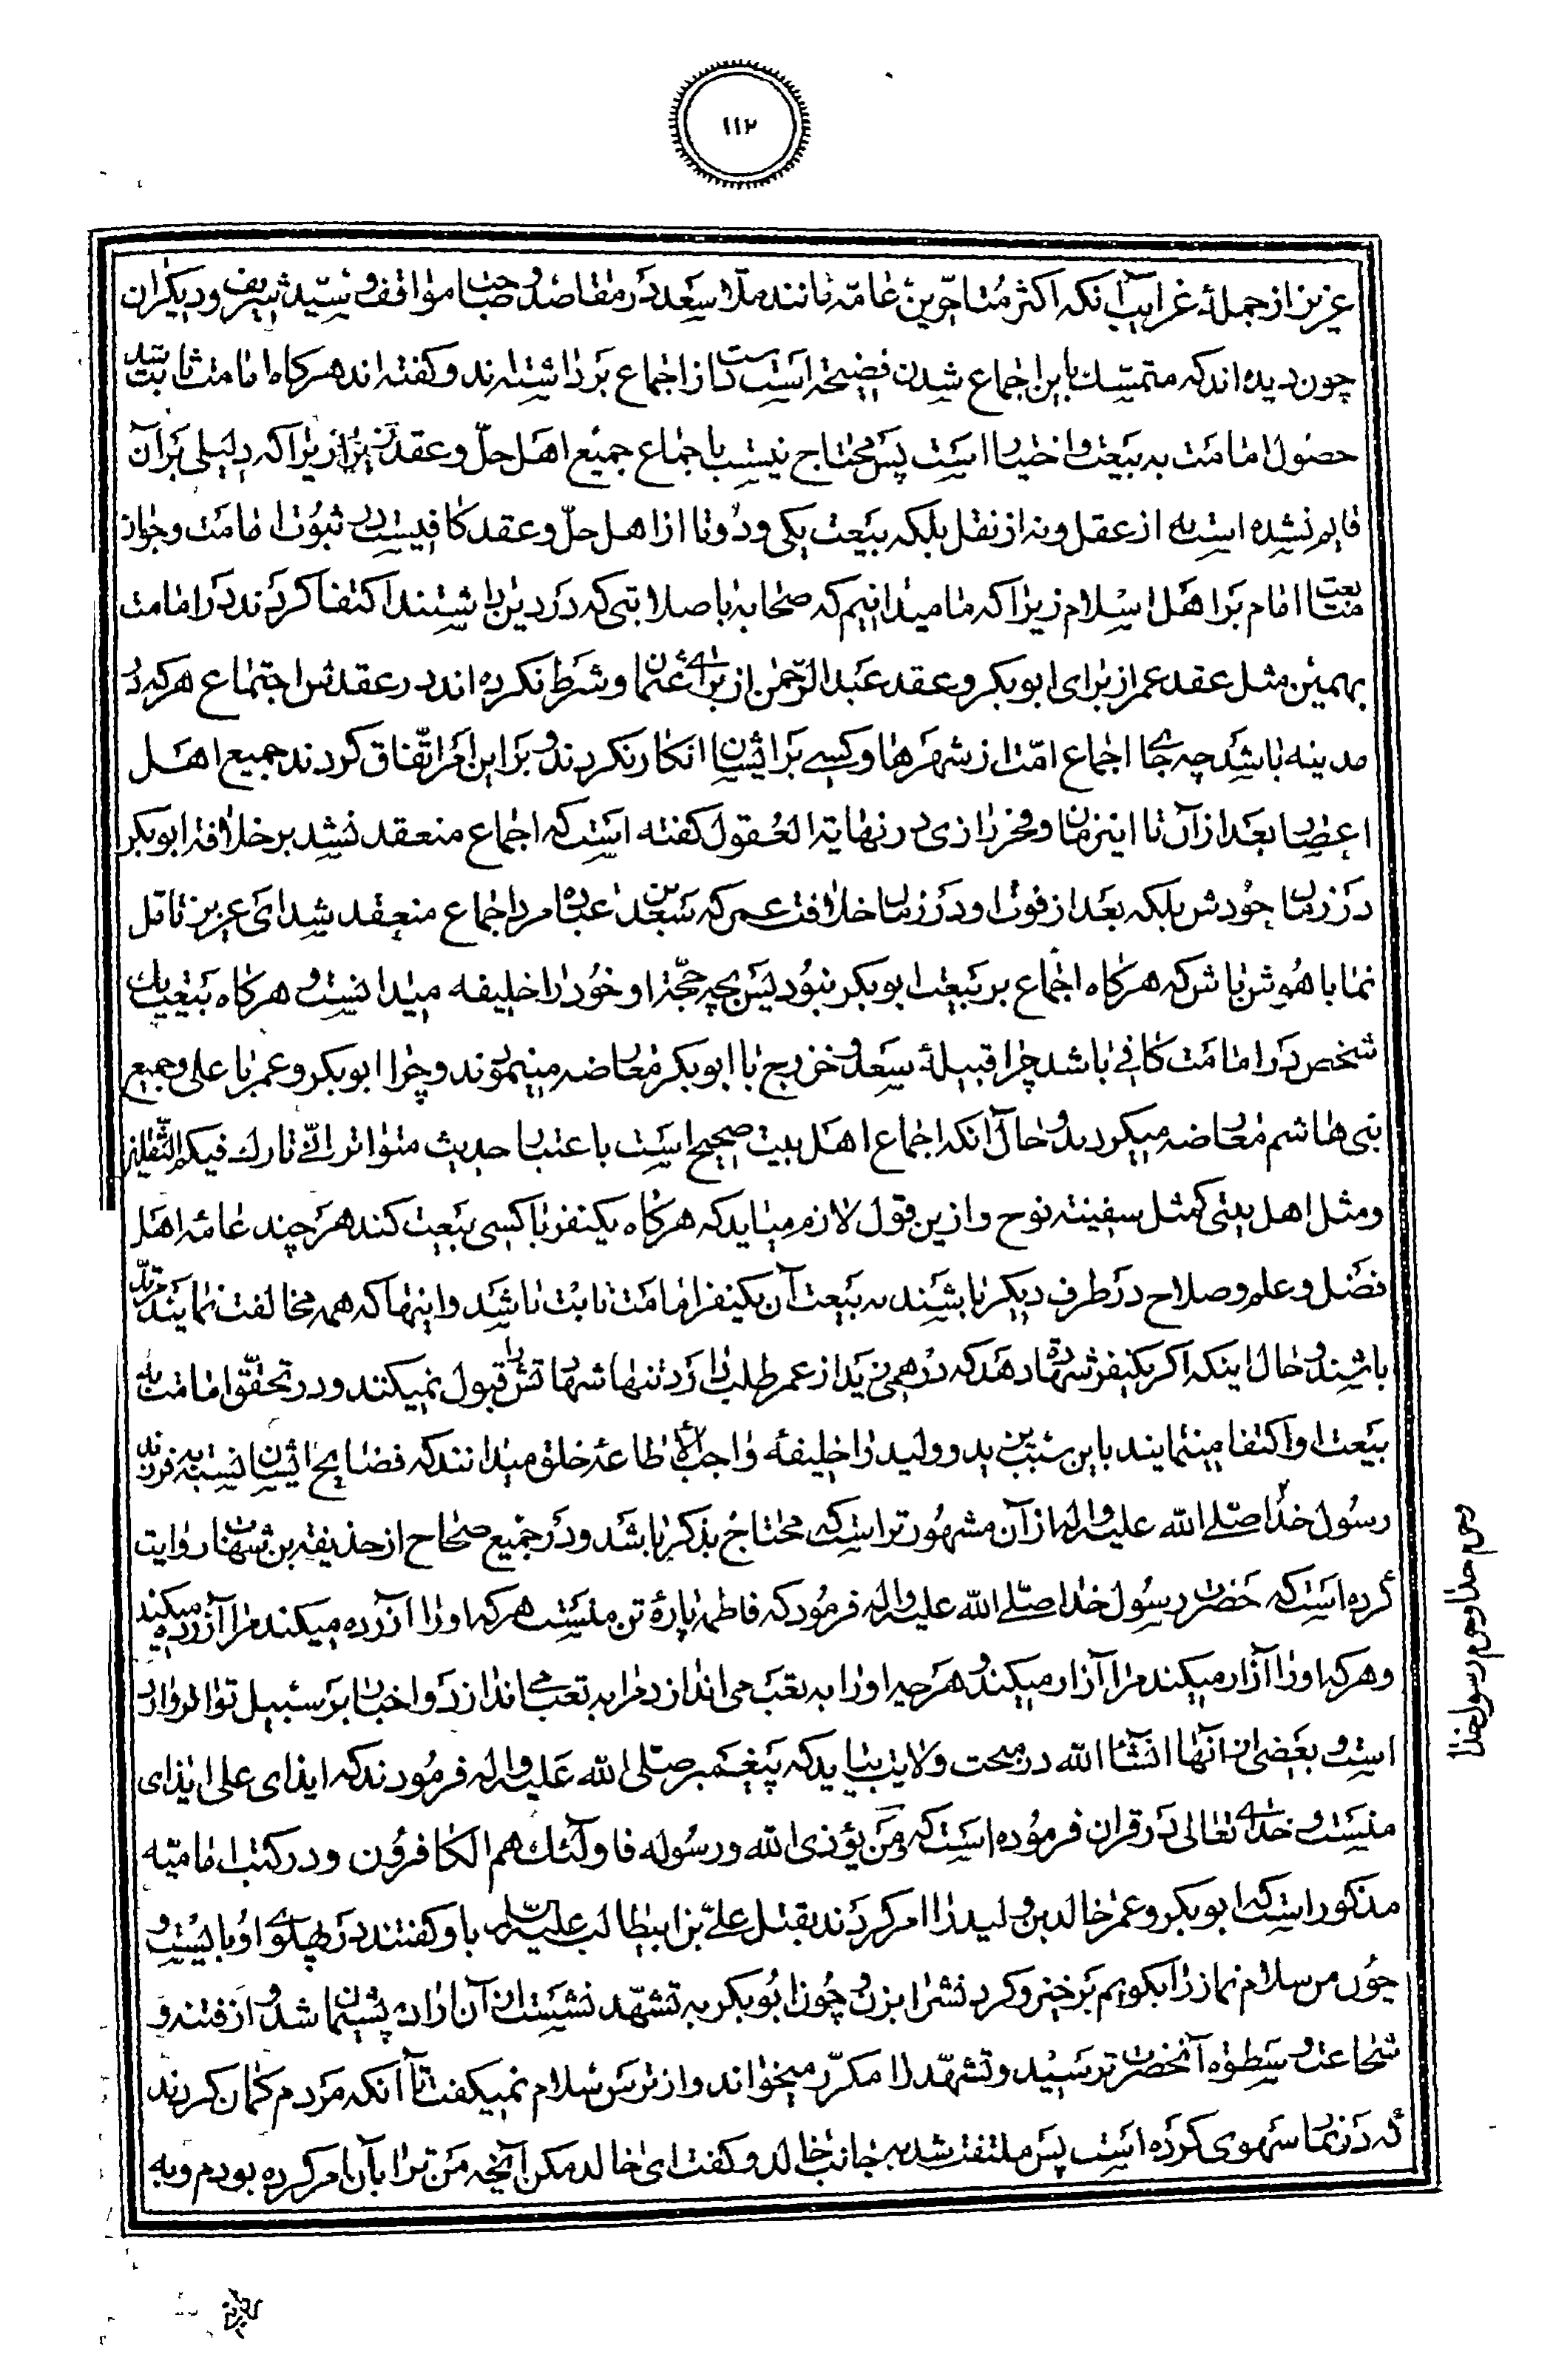 ١١٢
عزیز از جملۀ غرایب آنکه اکثر متاخّرین عامّه مانند ملّا سعد در مقاصد و صاحب مواقف و سیّد شریف و دیکران
چون دیده اند که متمسّک باین اجماع شدن فضیحة است دست از اجماع برداشته اند و کفته اند هرکاه امامت ثابت شد
حصول امامت به بیعت و اختیار است پس محتاج نیست باجماع جمیع اهل حلّ و عقد زیرا که دلیلی بر آن
قایم نشده است نه از عقل و نه از نقل بلکه بیعت یکی و دوتا از اهل حلّ و عقد کافیست در ثبوت امامت و جواز
متابعت امام بر اهل اسلام زیرا که ما میدانیم که صحابه با صلابتی که در دین داشتند اکتفا کردند در امامت
بهمین مثل عقد عمر از برای ابوبکر و عقد عبد الرّحمن از برای عثمان و شرط نکرده اند در عقدش اجتماع هرکه در
مدینه باشد چه جای اجماع امّت از شهرها و کسی بر ایشان انکار نکردند و بر این امر اتّفاق کردند جمیع اهل
اعصار بعد از آن تا اینزمان و فخر رازی در نهایة العقول کفته است که اجماع منعقد نشد بر خلافة ابوبکر
در زمان خودش بلکه بعد از فوت او در زمان خلافت عمر که سعد بن عباده مرد اجماع منعقد شد ای عزیز تامّل
نما با هوش باش که هرکاه اجماع بر بیعت ابوبکر نبود پس بچه حجّة او خود را خلیفه میدانست و هرکاه بیعت یک
شخص در امامت کافی باشد چرا قبیلۀ سعد و خزرج با ابوبکر معارضه مینموند و چرا ابوبکر و عمر با علی و جمیع
بنی هاشم معارضه میکردند و حال آنکه اجماع اهل بیت صحیح است باعتبار حدیث متواتر انّی تارک فیکم الثّقلین
و مثل اهل بیتی کمثل سفینة نوح و ازین قول لازم میاید که هرکاه یکنفر با کسی بیعت کند هرچند عامّه اهل
فضل و علم و صلاح در طرف دیکر باشند به بیعت آن یکنفر امامت ثابت باشد و اینها که همه مخالفت نمایند مرتدّ
باشند و حال اینکه اکر یکنفر شهادة دهد که درهمی زید از عمر طلب دارد تنها شهادتش را قبول نمیکنند و در تحقّق امامت به
بیعت او اکتفا مینمایند باین سبب یزید و ولید را خلیفۀ واجب الاطاعۀ خلق میدانند که فضایح ایشان نسبت به فرزند
رسول خدا صلّی الله علیه و اله از آن مشهورتر است که محتاج بذکر باشد و در جمیع صحاح از حذیفه روایت
کرده است که حضرت رسول خدا صلّی الله علیه و اله فرمود که فاطمه پارۀ تن منست هرکه او را آزرده میکند مرا آزرده میکند
و هرکه او را آزار میکند مرا آزار میکند و هرچه او را به تعب می اندازد مرا به تعب می اندازد و اخبار بر سبیل تواتر وارد
است و بعضی از آنها انشآء الله در مبحث ولایت بیاید که پیغمبر صلّی الله علیه و اله فرمودند که ایذای علی ایذای
منست و خدای تعالی در قران فرموده است که و من یؤذی الله و رسوله فاولئک هم الکافرون و در کتب امامیّه
مذکور است که ابوبکر و عمر خالد بن ولید را امر کردند بقتل علیّ بن ابیطالب علیه السلام باو کفتند در پهلوی او بایست و
چون من سلام نماز را بکویم برخیز و کردنش را بزن و چون ابوبکر به تشهّد نشست از آن اراده پشیمان شد و از فتنه و
شجاعت و سطوة آنحضرت ترسید و تشهّد را مکرّر میخواند و از ترس سلام نمیکفت تا آنکه مردم کمان کردند
که در نماز سهوی کرده است پس ملتفت شد بجانب خالد و کفت ای خالد مکن آنچه من ترا بآن امر کرده بودم و به
رسول خدا